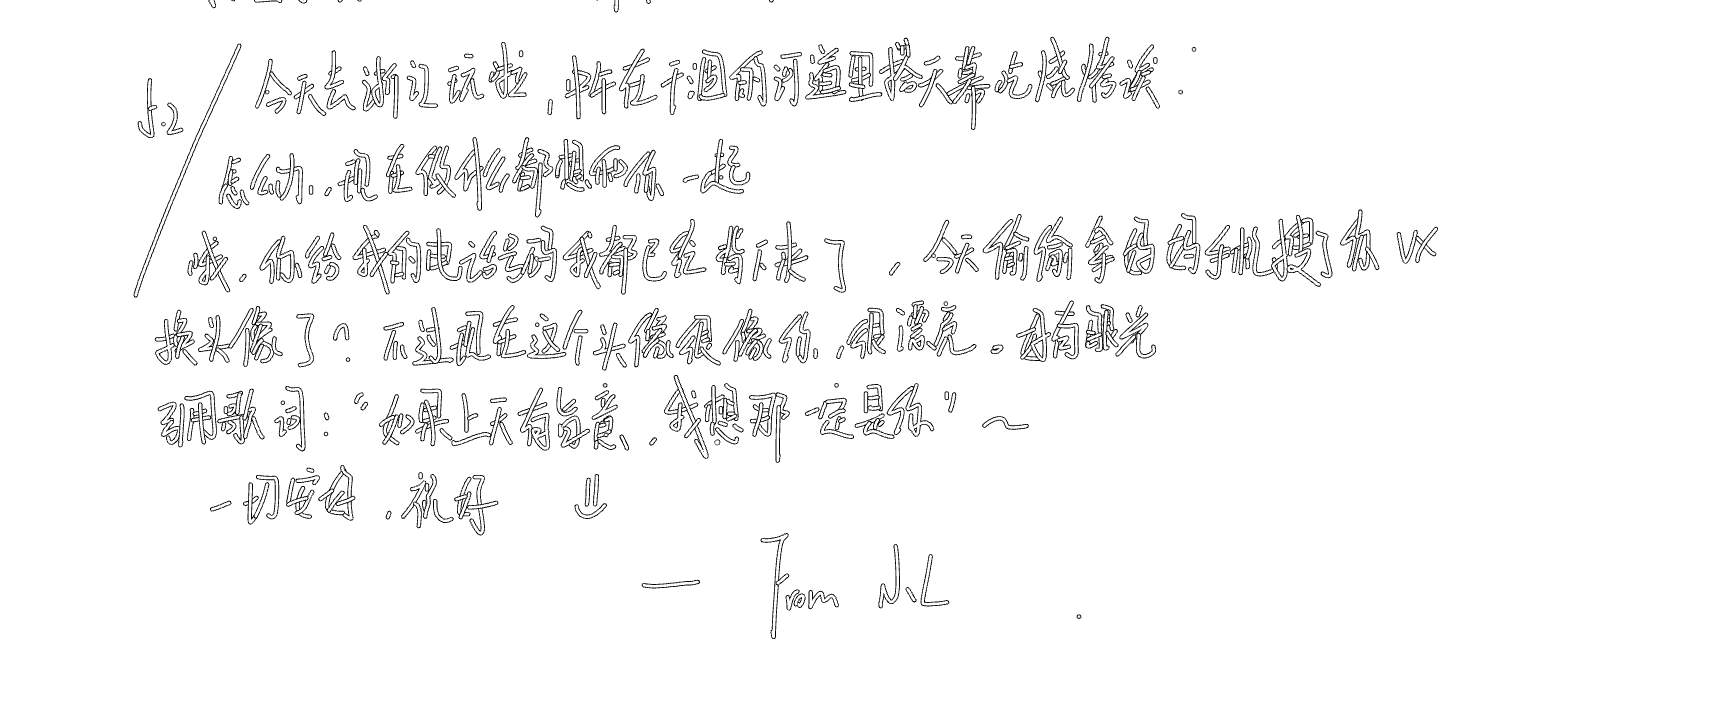 5.2
今天去浙江玩啦，中午在干涸的河道里搭天幕吃烧烤诶.
怎么办，现在做什么都想和你一起
哦，你给我的电话号码我都已经背下来了，今天偷偷拿妈妈手机搜了你VX
换头像了？不过现在这个头像很像你，很漂亮。有眼光
引用歌词：“如果上天有旨意，我想那一定是你”～
一切安好，祝好
— From N.L